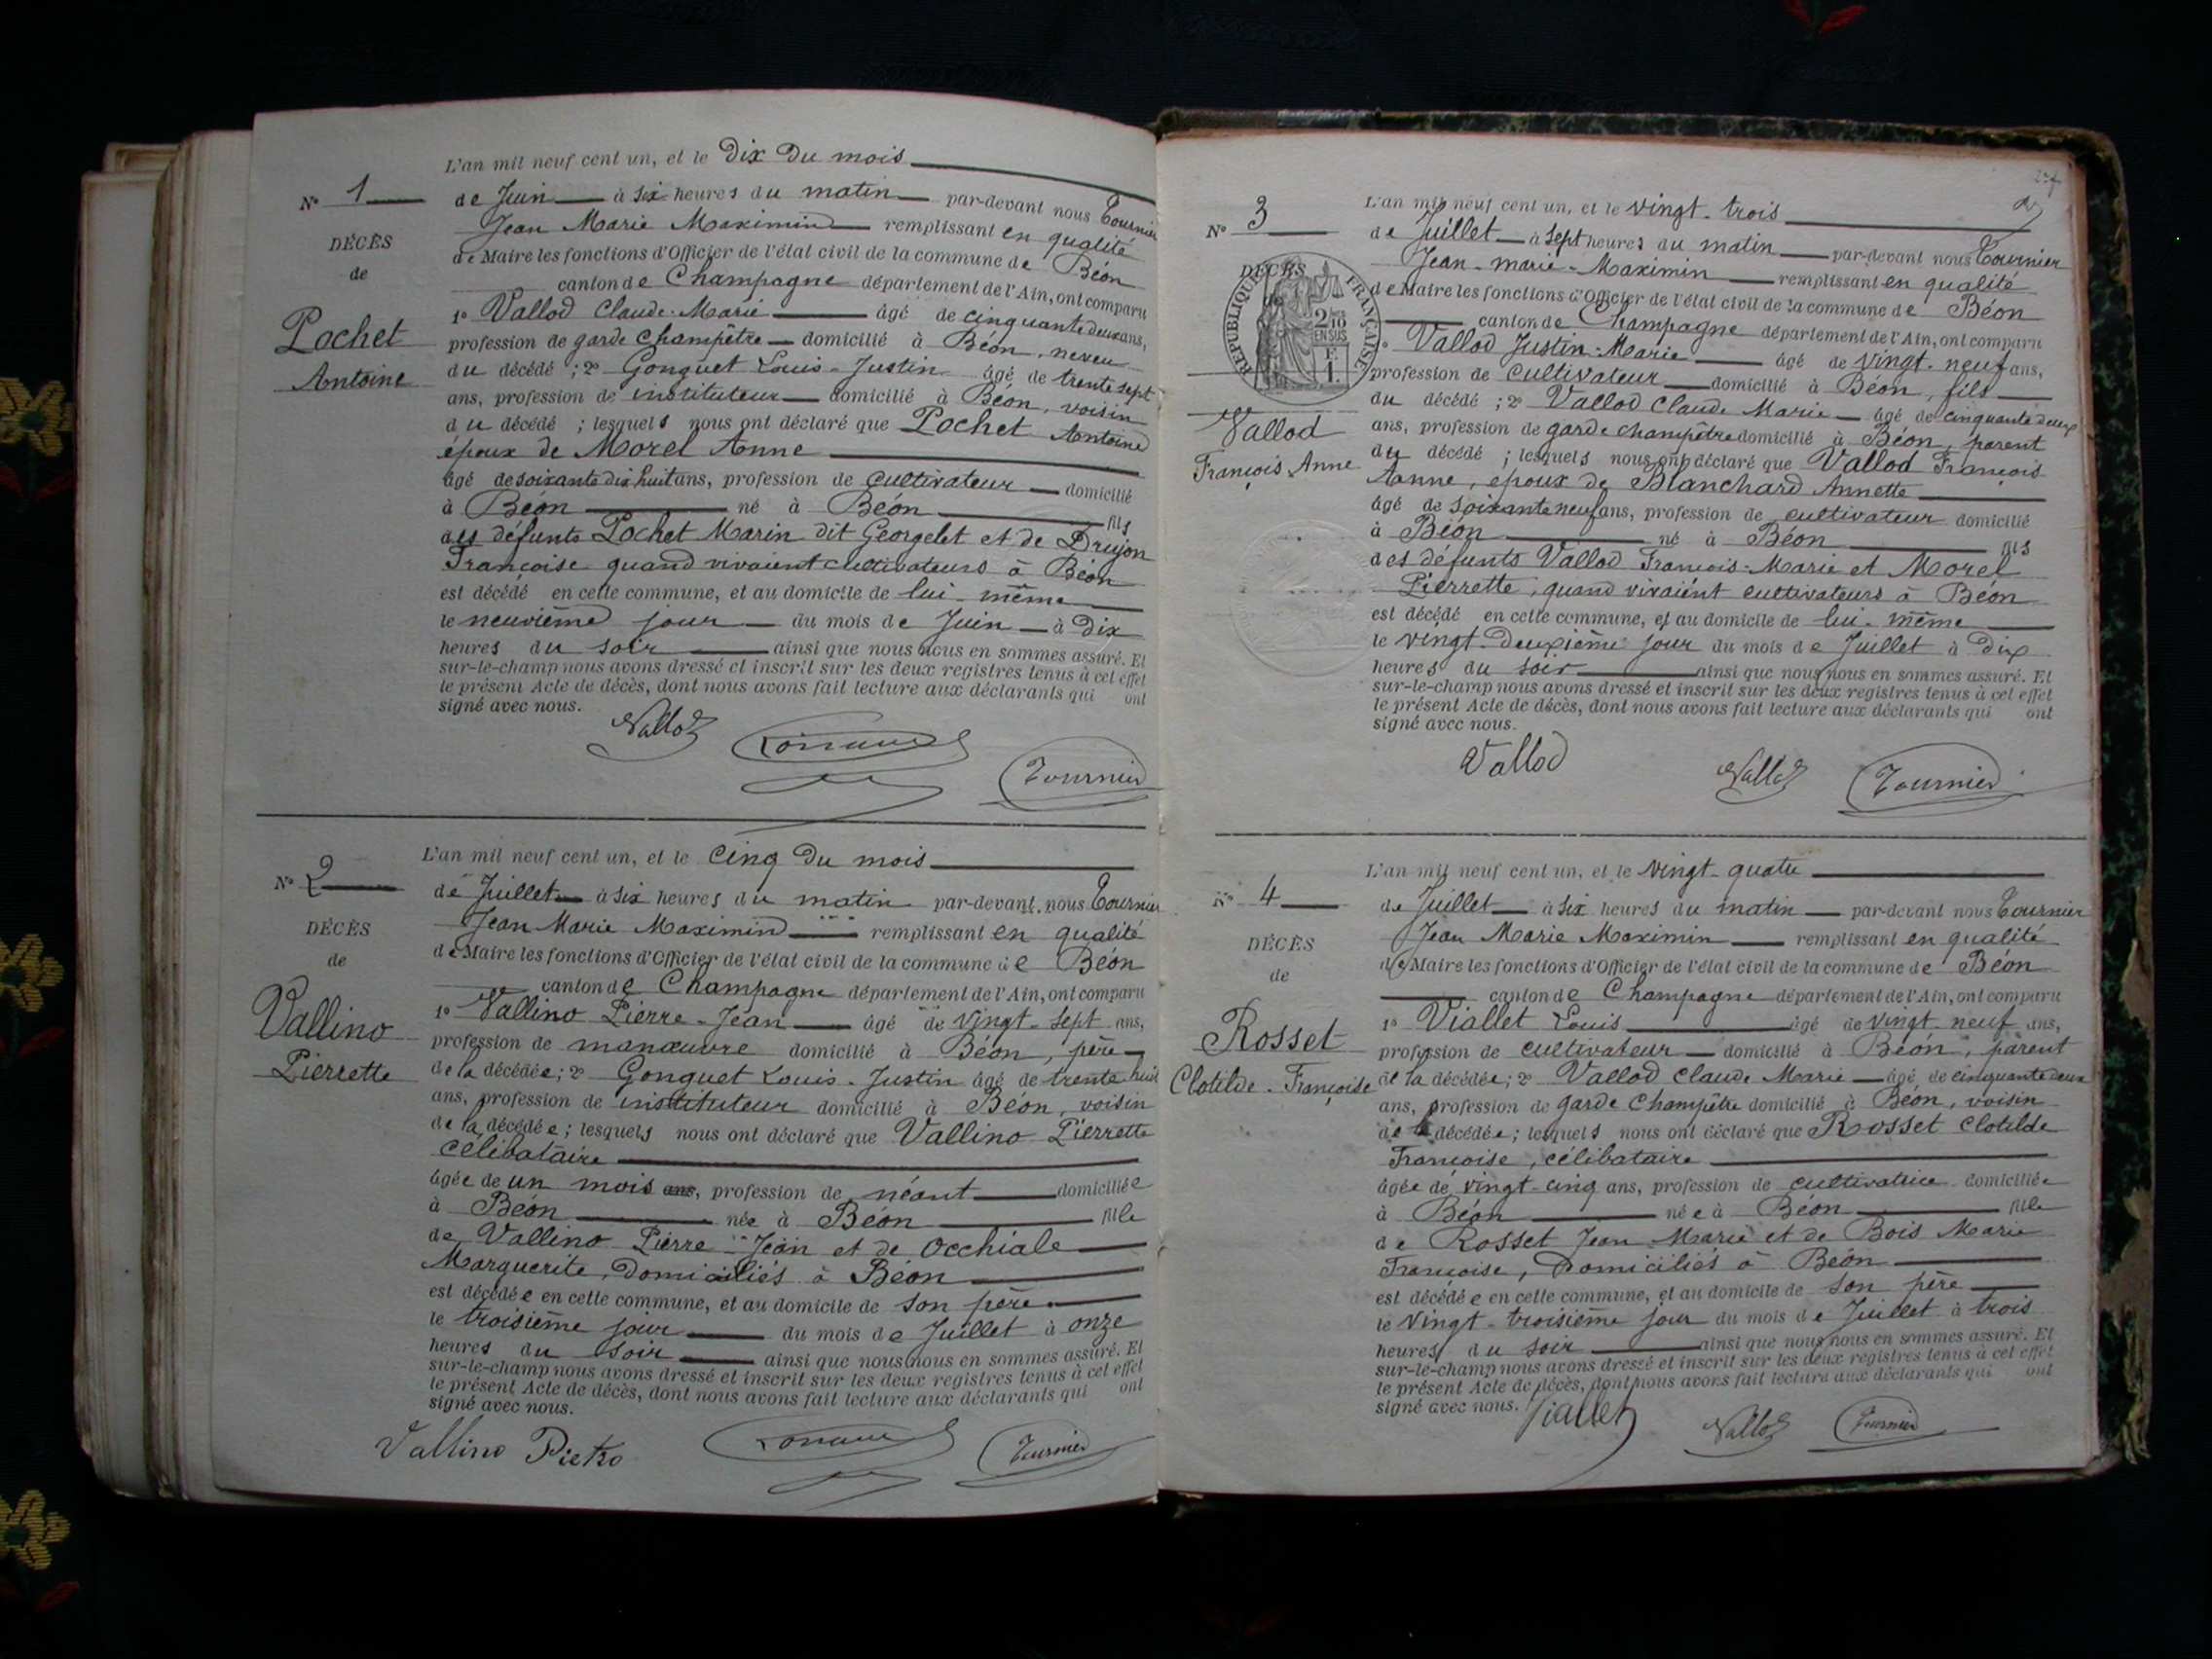 L'an mil neuf cent un, et le Dix Du mois
N° 1
de Juin à six heures du matin par-devant nous Tournier
Jean Marie Maximin remplissant en qualité
DÉCÈS
de Maire les fonctions d'Officier de l'état civil de la commune de Béon
de
canton de Champagne département de l'Ain, ont comparu
Pochet
Antoine
1° Vallod Claude-Marie âgé de cinquante deux ans,
profession de garde champêtre domicilié à Béon, neveu
du décédé ; 2° Gonguet Louis-Justin âgé de trente sept
ans, profession de instituteur domicilié à Béon, voisin
du décédé ; lesquels nous ont déclaré que Pochet Antoine
époux de Morel Anne
âgé de soixante dix huit ans, profession de cultivateur domicilié
à Béon né à Béon fils
des défunts Pochet Marin dit Georgelet et de Drujon
Françoise quand vivaient cultivateurs à Béon
est décédé en cette commune, et au domicile de lui-même
le neuvième jour du mois de Juin à Dix
heures du soir ainsi que nous nous en sommes assuré. Et
sur-le-champ nous avons dressé et inscrit sur les deux registres tenus à cet effet
le présent Acte de décès, dont nous avons fait lecture aux déclarants qui ont
signé avec nous.
Vallod
Tournier
L'an mil neuf cent un, et le cinq Du mois
N° 2
de Juillet à six heures du matin par-devant nous Tournier
Jean Marie Maximin remplissant en qualité
DÉCÈS
de Maire les fonctions d'Officier de l'état civil de la commune de Béon
de
canton de Champagne département de l'Ain, ont comparu
Vallino
Pierrette
1° Vallino Pierre-Jean âgé de vingt-sept ans,
profession de manœuvre domicilié à Béon, père
de la décédée ; 2° Gonguet Louis-Justin âgé de trente huit
ans, profession de instituteur domicilié à Béon, voisin
de la décédée ; lesquels nous ont déclaré que Vallino Pierrette
célibataire
âgée de un mois ans, profession de néant domiciliée
à Béon née à Béon fille
de Vallino Pierre-Jean et de Occhiale
Marguerite, Domiciliés à Béon
est décédée en cette commune, et au domicile de son père
le troisième jour du mois de Juillet à onze
heures du soir ainsi que nous nous en sommes assuré. Et
sur-le-champ nous avons dressé et inscrit sur les deux registres tenus à cet effet
le présent Acte de décès, dont nous avons fait lecture aux déclarants qui ont
signé avec nous.
Vallino Pietro
Tournier
L'an mil neuf cent un, et le vingt-trois
N° 3
de Juillet à sept heures du matin par-devant nous Tournier
Jean-marie-Maximin remplissant en qualité
DÉCÈS
RÉPUBLIQUE FRANÇAISE
2/10 EN SUS
F. 1.
de Maire les fonctions d'Officier de l'état civil de la commune de Béon
canton de Champagne département de l'Ain, ont comparu
Vallod
François Anne
Vallod Justin-Marie âgé de vingt-neuf ans,
profession de cultivateur domicilié à Béon, fils
du décédé ; 2° Vallod Claude Marie âgé de cinquante deux
ans, profession de garde champêtre domicilié à Béon, parent
du décédé ; lesquels nous ont déclaré que Vallod François
Anne, époux de Blanchard Annette
âgé de soixante neuf ans, profession de cultivateur domicilié
à Béon né à Béon fils
des défunts Vallod François-Marie et Morel
Pierrette, quand vivaient cultivateurs à Béon
est décédé en cette commune, et au domicile de lui-même
le vingt-deuxième jour du mois de Juillet à Dix
heures du soir ainsi que nous nous en sommes assuré. Et
sur-le-champ nous avons dressé et inscrit sur les deux registres tenus à cet effet
le présent Acte de décès, dont nous avons fait lecture aux déclarants qui ont
signé avec nous.
Vallod Vallod Tournier
L'an mil neuf cent un, et le vingt-quatre
N° 4
de Juillet à six heures du matin par-devant nous Tournier
Jean Marie Maximin remplissant en qualité
DÉCÈS
de Maire les fonctions d'Officier de l'état civil de la commune de Béon
de
canton de Champagne département de l'Ain, ont comparu
Rosset
Clotilde-Françoise
1° Viallet Louis âgé de vingt-neuf ans,
profession de cultivateur domicilié à Béon, parent
de la décédée ; 2° Vallod Claude Marie âgé de cinquante deux
ans, profession de garde champêtre domicilié à Béon, voisin
de la décédée ; lesquels nous ont déclaré que Rosset Clotilde
Françoise, célibataire
âgée de vingt-cinq ans, profession de cultivatrice domiciliée
à Béon née à Béon fille
de Rosset Jean Marie et de Bois Marie
Françoise, Domiciliés à Béon
est décédée en cette commune, et au domicile de son père
le vingt-troisième jour du mois de Juillet à trois
heures du soir ainsi que nous nous en sommes assuré. Et
sur-le-champ nous avons dressé et inscrit sur les deux registres tenus à cet effet
le présent Acte de décès, dont nous avons fait lecture aux déclarants qui ont
signé avec nous.
Viallet Vallod Tournier